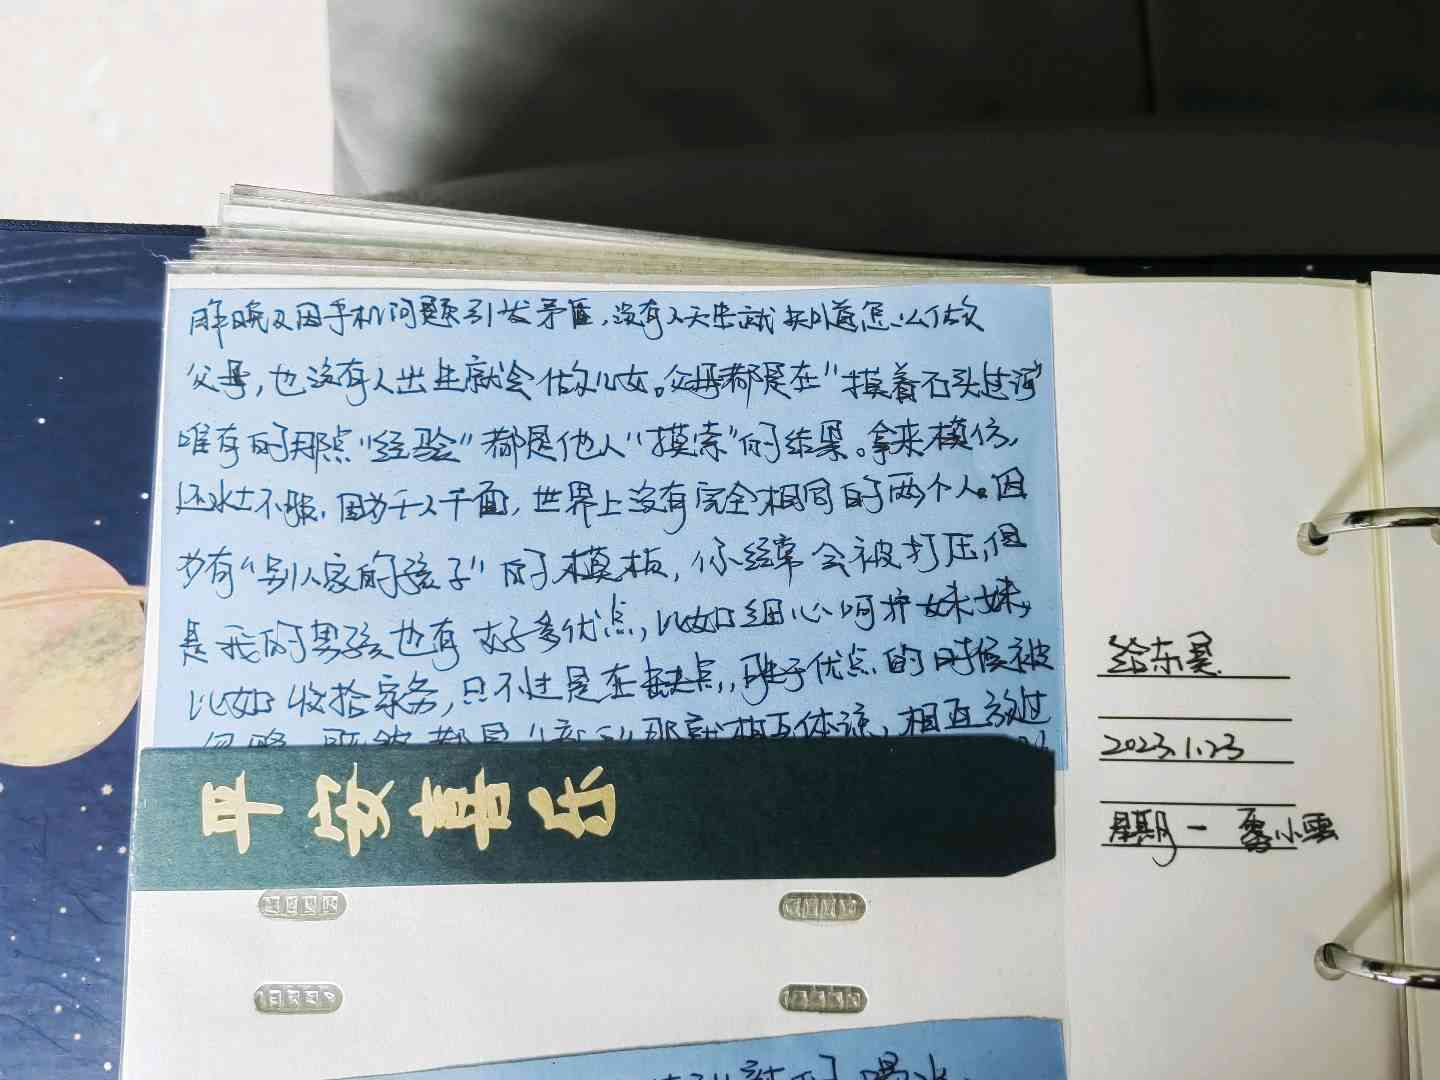 昨晚又因手机问题引发矛盾,没有人天生就知道怎么做
父母,也没有人出生就会做儿女。父母都是在"摸着石头过河"
唯有的那点"经验"都是他人"摸索"的结果。拿来模仿,
还水土不服,因为千人千面,世界上没有完全相同的两个人。因
为有"别人家的孩子"的模板,你经常会被打压,但
是我的男孩也有好多优点,比如细心呵护妹妹,
比如收拾家务,只不过是在缺点,胜于优点的时候被
忽略 既然都是 那就相互体谅,相互
平安喜乐
给东昊
2023.1.23
星期一 小雪
的 喝水